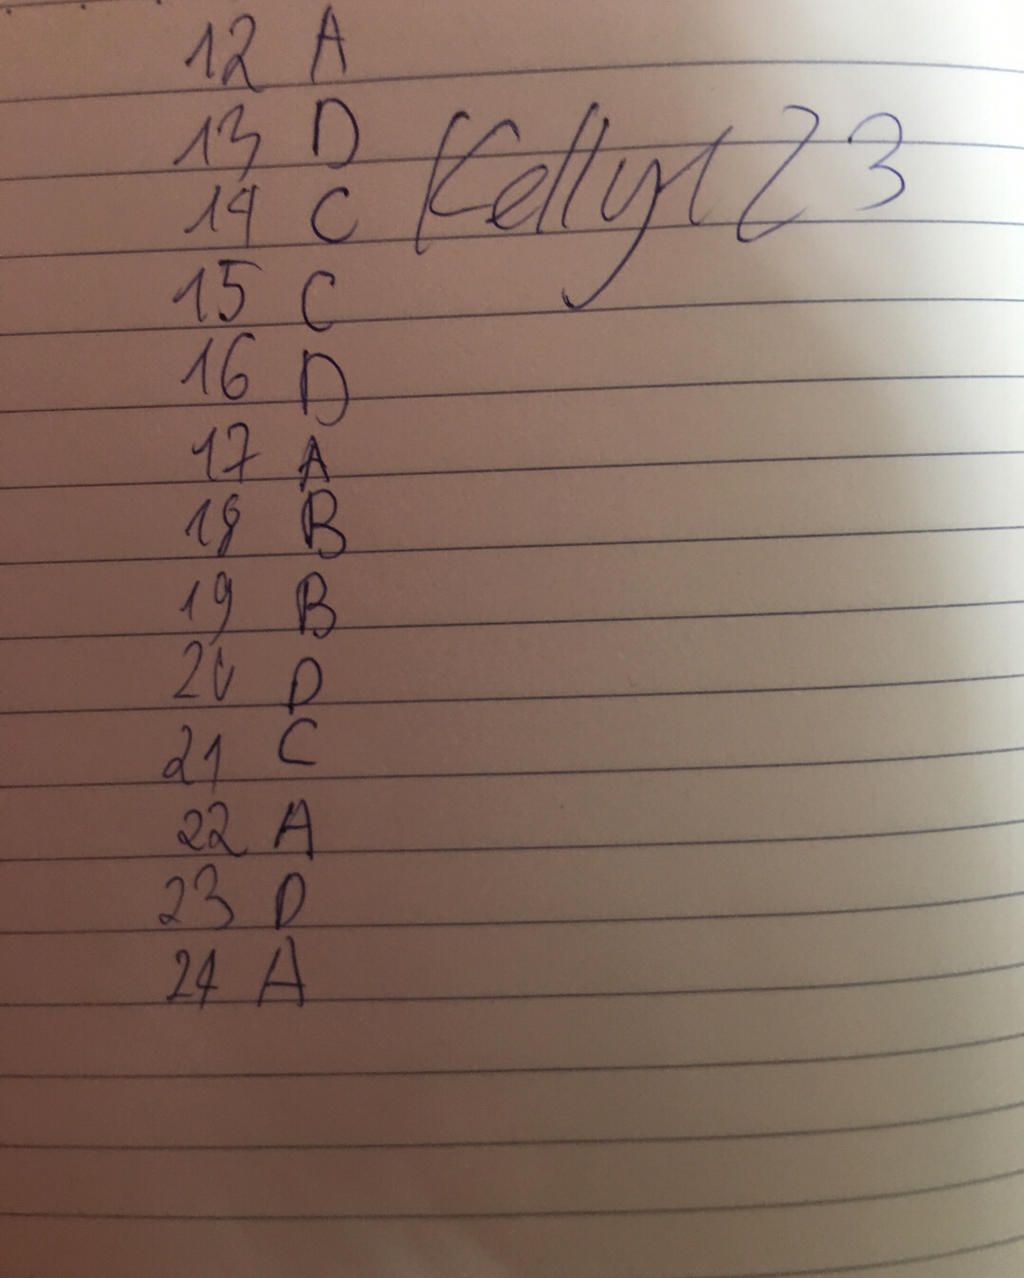 12 A
13 D
14 C
Kelly123
15 C
16 D
17 A
18 B
19 B
20 D
21 C
22 A
23 D
24 A